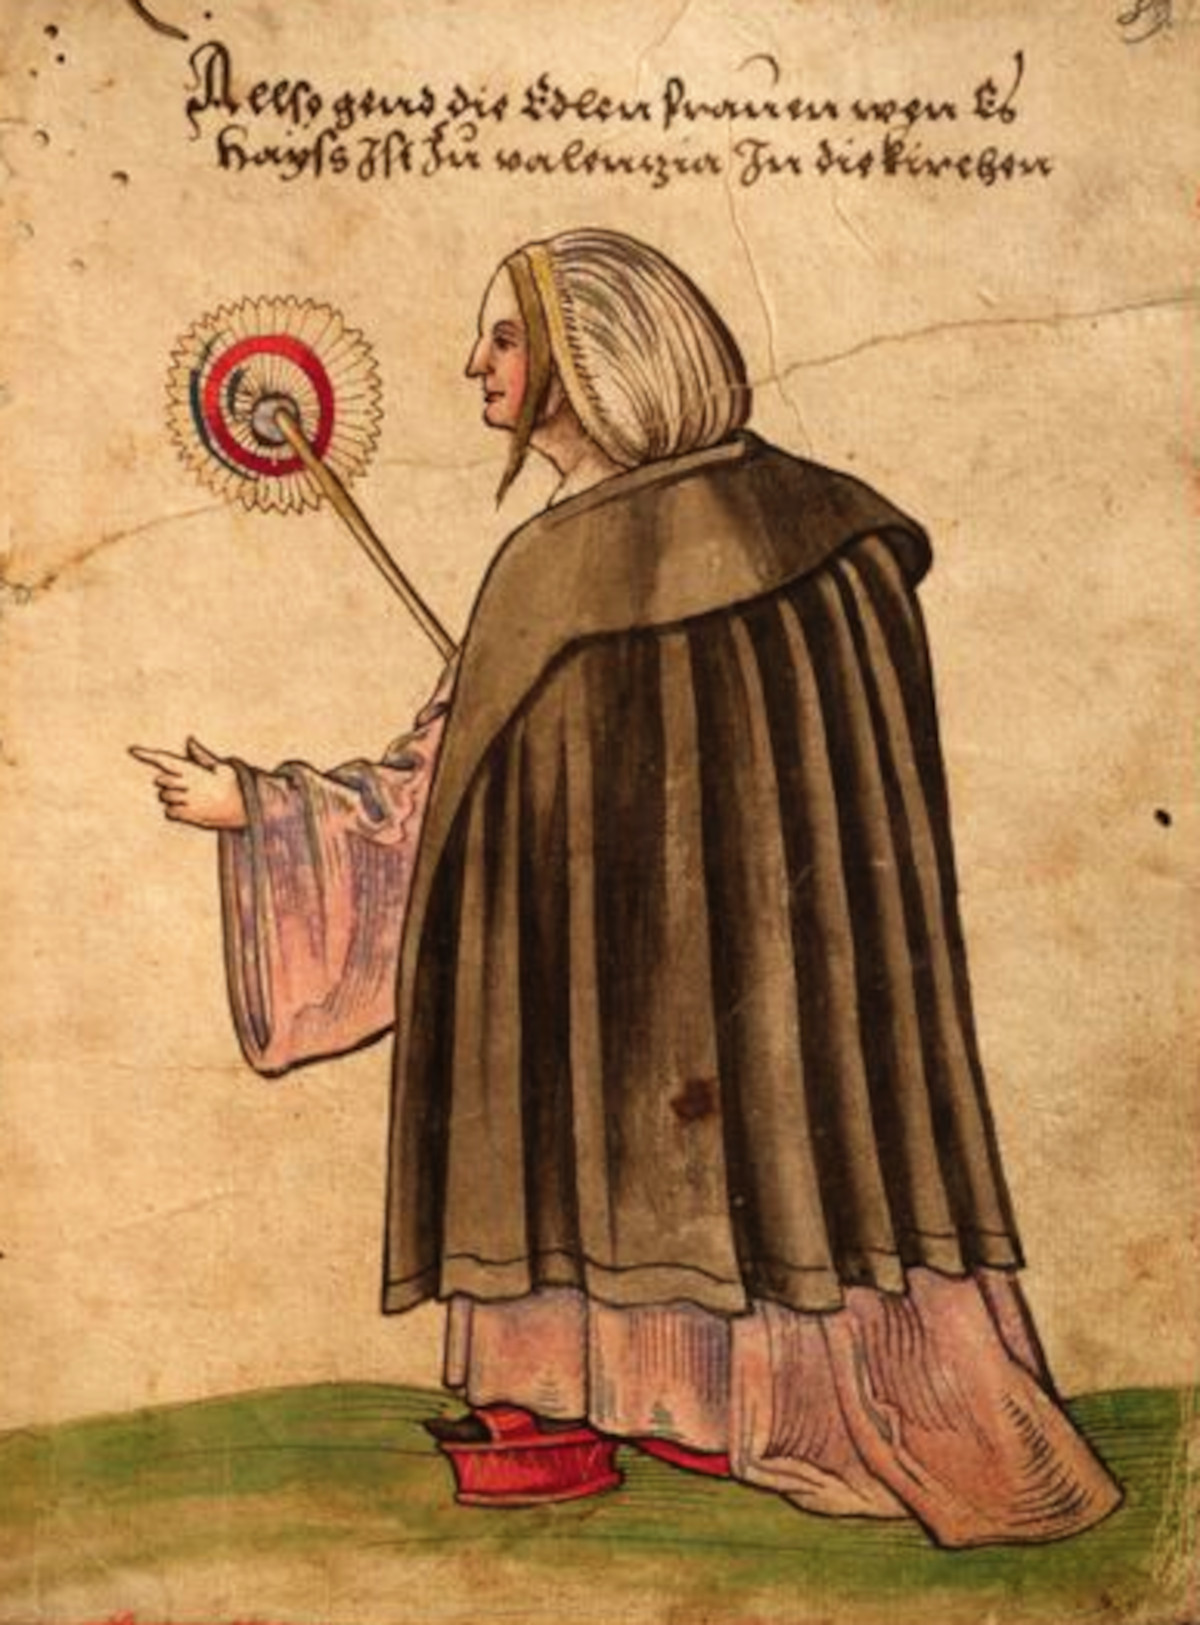 Allso gend die Edlen frauen wen Es
hayss Ist Zu valenzia In die kirchen